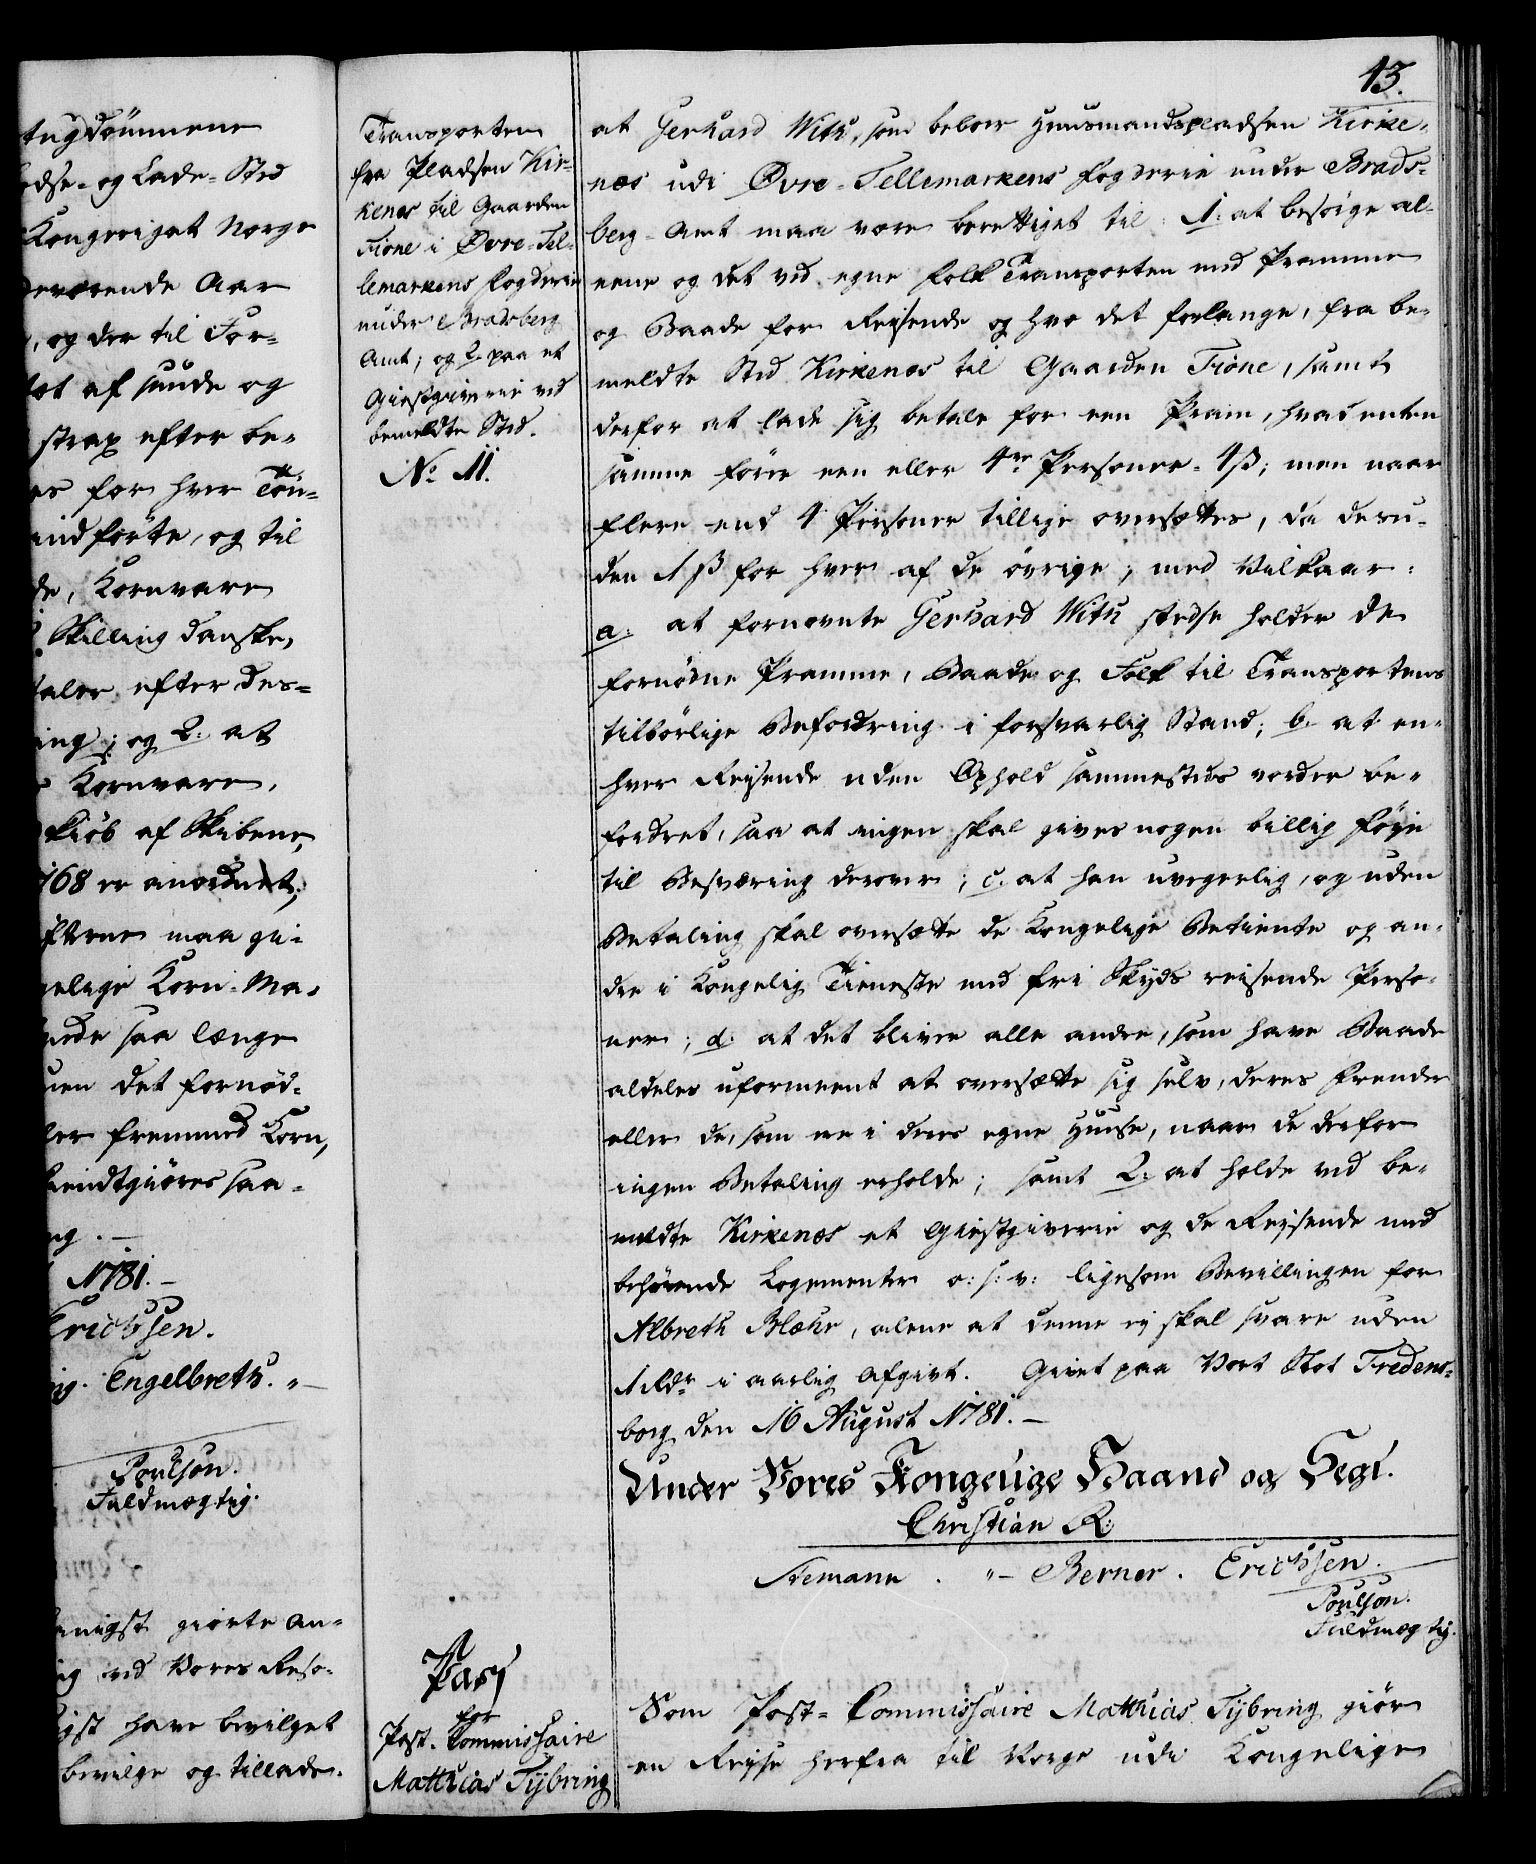 tugdömmene
edse- og Lade-Sted
Kongeriget Norge
derværende Aar
, og der til For-
tet af sunde og
strax efter be-
es for hver Tön-
indförte, og til
de, Kornvare
Skilling danske,
taler efter des-
ing; og 2. at
Kornvare,
kiöb af Skibene,
768 er anordnet;
ifterne maa gi-
gelige Korn-Ma-
ede saa længe
uen det fornöd-
ler fremmed Korn,
kiendtgiöres saa-
ng. —
1781. —
Erichssen.
ig. Engelbreth. „—
Poulson.
Fuldmægtig.
anigst giorte An-
ig ved Vores Reso-
igst have bevilget
bevilge og tillade.
Transporten
fra Pladsen Kir-
kenæs til Gaarden
Fione i Øvre-Tel-
lemarkens Fogderie
under Bradsberg
Amt; og 2. paa et
Giestgiverie ved
bemeldte Sted.
No. 11.
13.
at Gerhard With, som beboer Huusmandspladsen Kirke-
næs udi Øvre-Tellemarkens Fogderie under Brads-
berg-Amt maa være berettiget til: 1. at besörge al-
eene og det ved egne Folk Transporten med Pramme
og Baade for Reisende og hvo det forlange, fra be-
meldte Sted Kirkenæs til Gaarden Fione, samt
derfor at lade sig betale for een Pram, hvad enten
samme förer een eller 4re Personer - 4 ß; men naar
flere end 4 Personer tillige oversættes, da desu-
den 1 ß for hver af de övrige; med Vilkaar:
a. at fornævnte Gerhard With stedse holder de
fornödne Pramme, Baade og Folk til Transportens
tilbörlige Befordring i forsvarlig Stand; b. at en-
hver Reisende uden Ophold sammesteds vorder be-
fordret, saa at ingen skal gives nogen billig Föye
til Besværing derover; c. at han uvegerlig, og uden
Betaling skal oversætte de Kongelige Betiente og an-
dre i Kongelig Tieneste med fri Skyds reisende Perso-
ner; d. at det bliver alle andre, som have Baade
aldeles uformeent at oversætte sig selv, deres Frender
eller de, som ere i deres egne Huuse, naar de derfor
ingen Betaling erholde; samt 2. at holde ved be-
meldte Kirkenæs et Giestgiverie og de Reisende med
behörende Logementer o: s: v: ligesom Bevillingen for
Albreth Blæhr, alene at denne ej skal svare uden
1 rdr i aarlig Afgivt. Givet paa Vort Slot Fredens-
borg den 16 August 1781. —
Under Vores Kongelige Haand og Segl.
Christian R.
Stemann. „— Berner. Erichssen.
Poulson.
Fuldmægtig.
Pass
for
Post-Commissaire
Matthias Tybring
Som Post-Commissaire Matthias Tybring giör
en Reyse herfra til Norge udi Kongelige